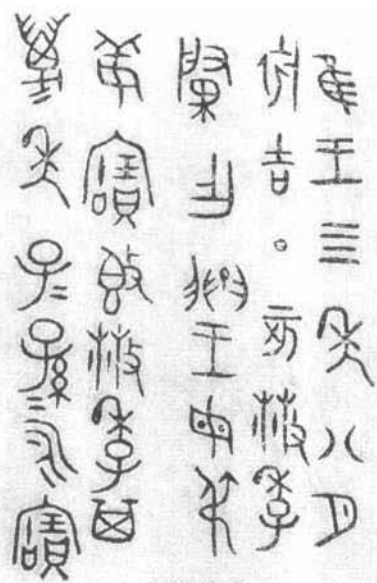 隹王四年八月
初吉丁亥散季
肇乍朕王母叔
姜寶𣪘散季其
萬年子子孫孫永寶